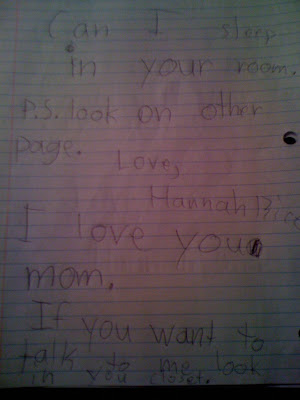 Can I sleep
in your room.
P.S. look on other
page.
Love,
Hannah Bice
I love you
mom.
If you want to
talk to me look
in you closet.